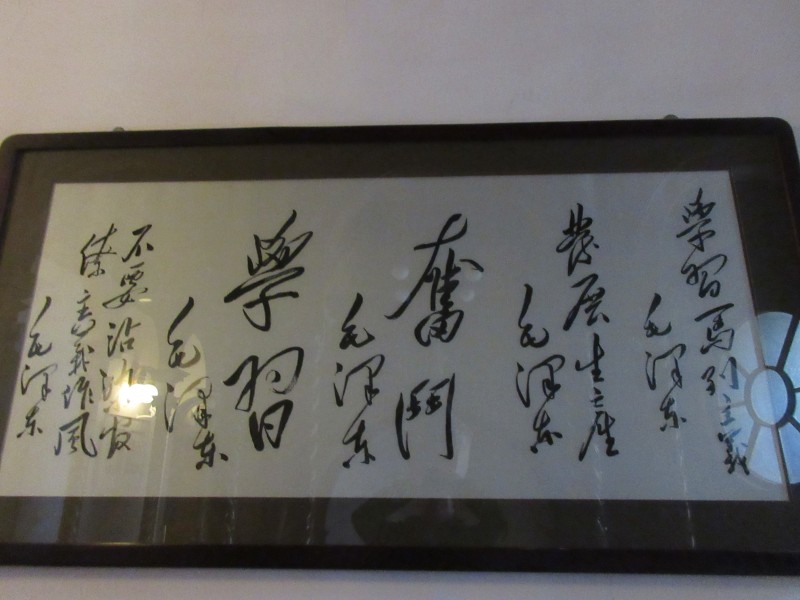 學習馬列主義
毛澤东
發展生產
毛澤东
奮鬥
毛澤东
學習
毛澤东
不要沾染官
僚主義作風
毛澤东